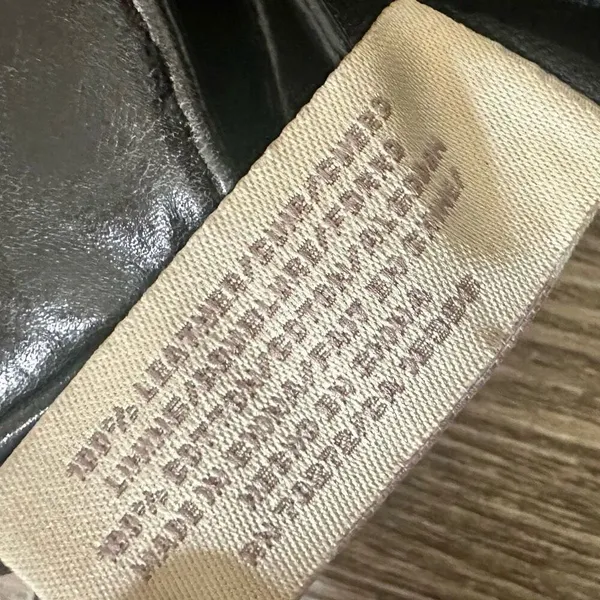 100% LEATHER/CUIR/CUERO
LINING/DOUBLURE/FORRO
100% COTTON/COTON/ALGODON
MADE IN CHINA/FAIT EN CHINE/
HECHO EN CHINA
RN 70972/CA